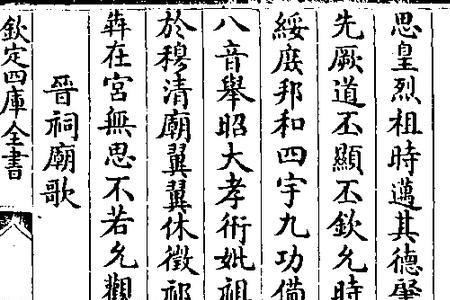 思皇烈祖時邁其德肇
先厥道丕顯丕欽允時
綏庶邦和四宇九功備
八音舉昭大孝術妣祖
於穆清廟翼翼休徵祁
犇在宮無思不若允觀
晉祠廟歌
欽定四庫全書